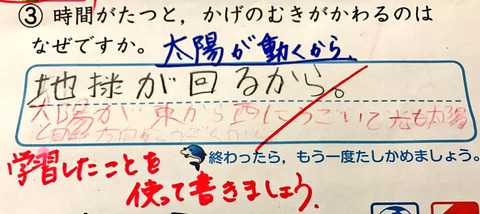 ③ 時間がたつと，かげのむきがかわるのは
なぜですか。
太陽が動くから。
地球が回るから。
太陽が東から西にうごいて 太陽
終わったら，もう一度たしかめましょう。
学習したことを
使って書きましょう。